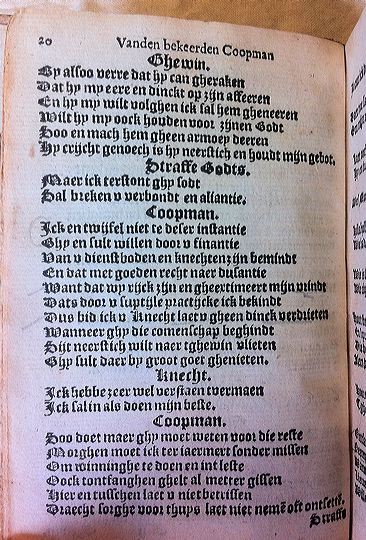 20 Vanden bekeerden Coopman
Ghewin.
Hy alsoo verre dat hy can gheraken
Dat hy my eere en dinckt op zijn affeeren
En hy my wilt volghen ick sal hem gheneeren
Wilt hy my oock houden voor zijnen Godt
Soo en mach hem gheen armoep deeren
Hy crijcht genoech is hy neerstich en houdt mijn gebot.
Straffe Godts.
Maer ick terstont ghy sodt
Sal breken v verbondt en alliantie.
Coopman.
Ick en twijfel niet te deser instantie
Ghy en sult willen door v finantie
Van v dienstboden en knechten zijn bemindt
En dat met goeden recht naer
Want dat wy rijck zijn en gheextimeert mijn vrindt
Dats door v suptijle practijcke ick bekindt
Dus bid ick v Knecht laet v gheen dinck verdrieten
Wanneer ghy die comenschap beghindt
Sijt neerstich wilt naer tghewin vlieten
Ghy sult daer by groot goet ghenieten.
Knecht.
Ick hebbe zeer wel verstaen tvermaen
Ick sal in als doen mijn beste.
Coopman.
Soo doet maer ghy moet weten voor die reste
Morghen moet ick ter iaermert sonder missen
Om winninghe te doen en int leste
Oock tontfanghen ghelt al metter gissen
Hier en tusschen laet v niet betrissen
Draecht sorghe voor thuys laet niet nemē oft ontsettē.
Straffe